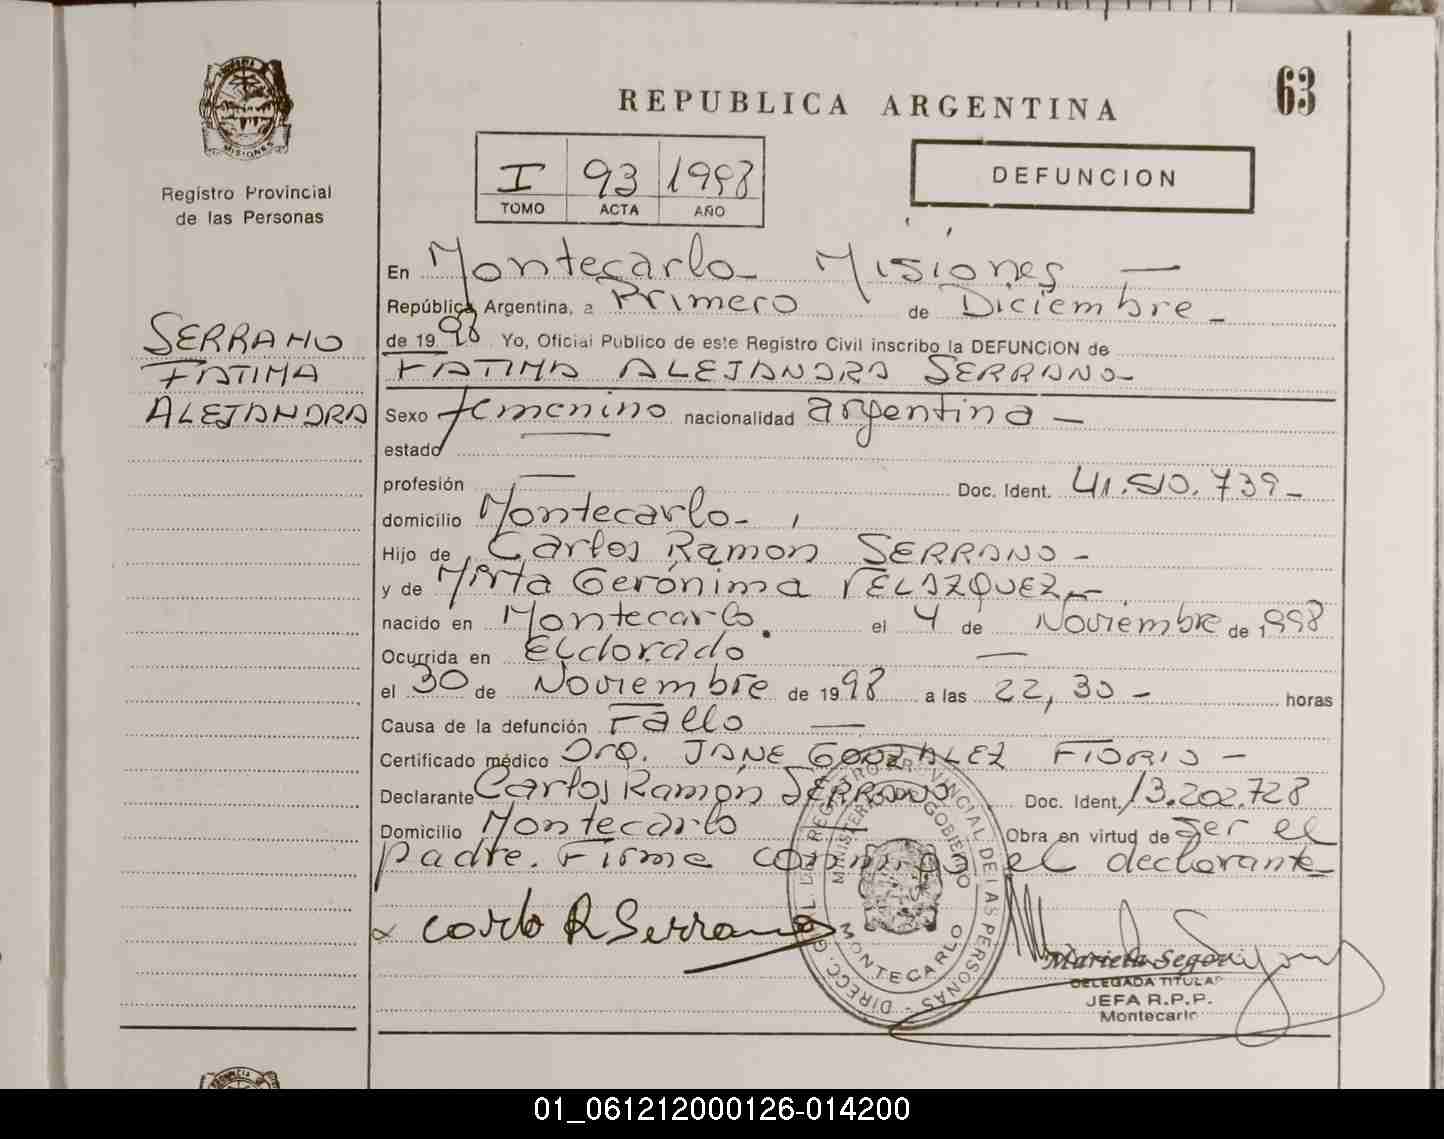 63
REPUBLICA ARGENTINA
MISIONES
Registro Provincial
de las Personas
I 93 1998
TOMO ACTA AÑO
DEFUNCION
SERRANO
FATIMA
ALEJANDRA
En Montecarlo - Misiones —
República Argentina, a Primero de Diciembre -
de 1998 Yo, Oficial Publico de este Registro Civil inscribo la DEFUNCION de
FATIMA ALEJANDRA SERRANO-
Sexo femenino nacionalidad argentina —
estado —
profesión — Doc. Ident. 41.510.739-
domicilio Montecarlo-
Hijo de Carlos Ramón SERRANO -
y de Mirta Gerónima VELAZQUEZ,-
nacido en Montecarlo. el 4 de Noviembre de 1998
Ocurrida en Eldorado —
el 30 de Noviembre de 1998 a las 22,30 - horas
Causa de la defunción Fallo —
Certificado médico Dra. JANE GONZALEZ FIORIO -
Declarante Carlos Ramón SERRANO Doc. Ident. 13.202.728
Domicilio Montecarlo — Obra en virtud de Ser el
padre. Firma conmigo el declarante-
x Carlo R Serrano
DIRECC. GRAL. REGISTRO PROVINCIAL DE LAS PERSONAS -
MINISTERIO DE GOBIERNO
MONTECARLO
Mariela
DELEGADA TITULAR
JEFA R.P.P.
Montecarlo
01_061212000126-014200